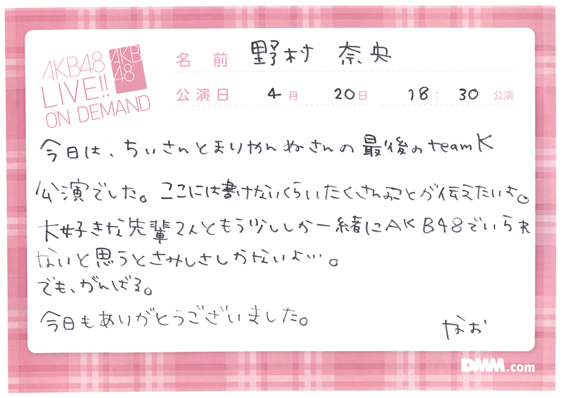 AKB48
LIVE!!
ON DEMAND
AKB
48
名 前 野村 奈央
公演日 4月 20日 18:30 公演
今日は、ちぃさんとまりやんぬさんの最後のteamK
公演でした。ここには書けないくらいたくさんのことが伝えたいよ。
大好きな先輩さんともう少ししか一緒にAKB48でいられ
ないと思うとさみしさしかないよ…。
でも、がんばる。
今日もありがとうございました。
なお
DMM.com